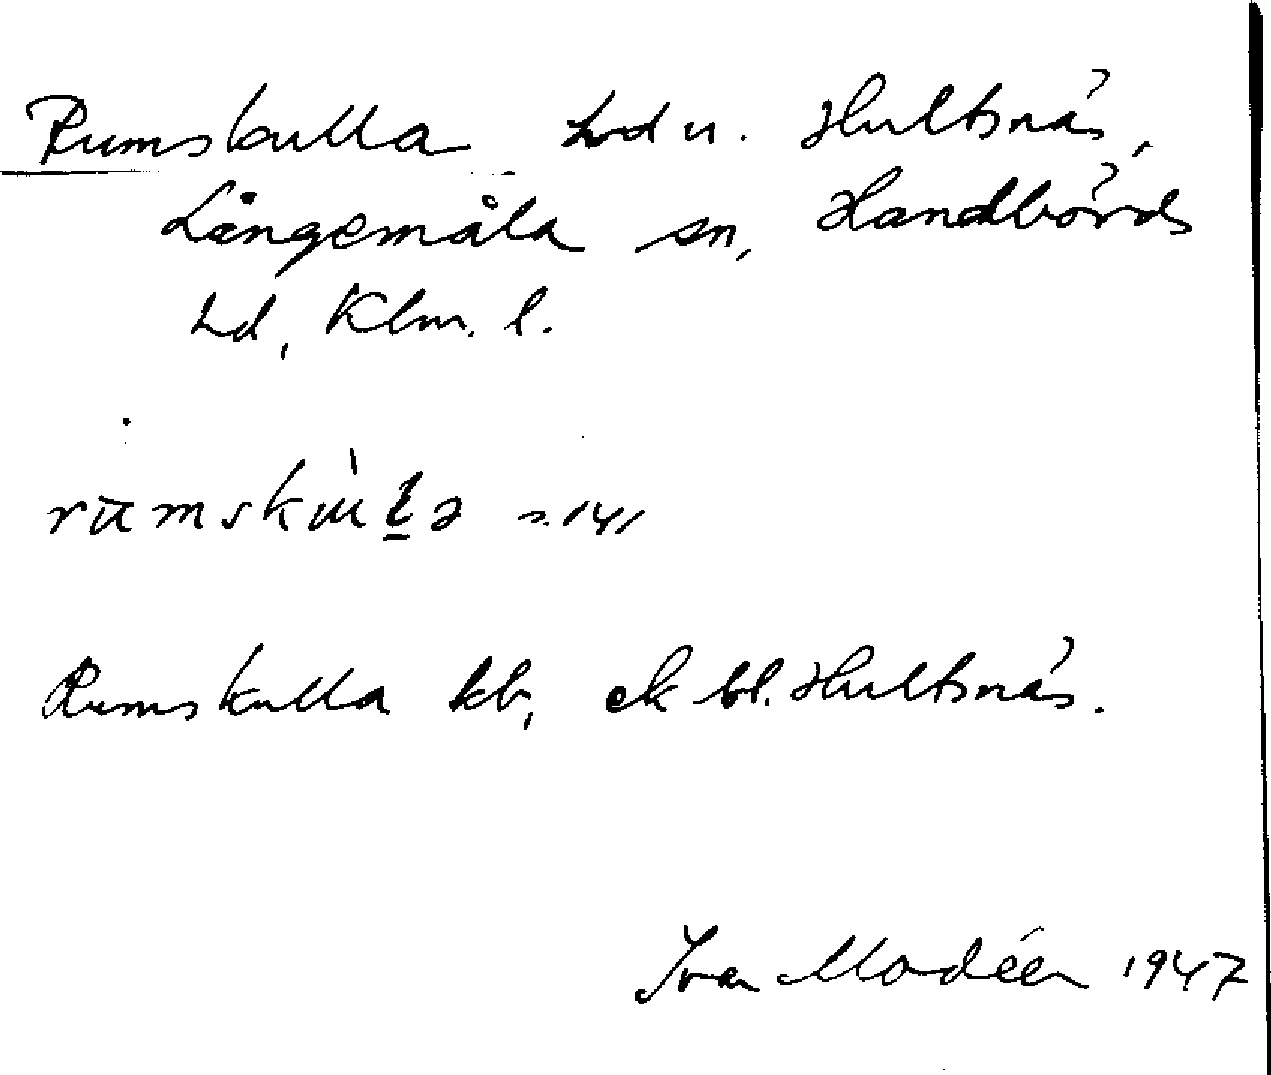 Rumskulla hd u. Hultsnäs,
Långemåla sn, Handbörds
hd, Klm. l.
Rumskulla kb, ek bl. Hultsnäs.
Ivar Modéer 1947